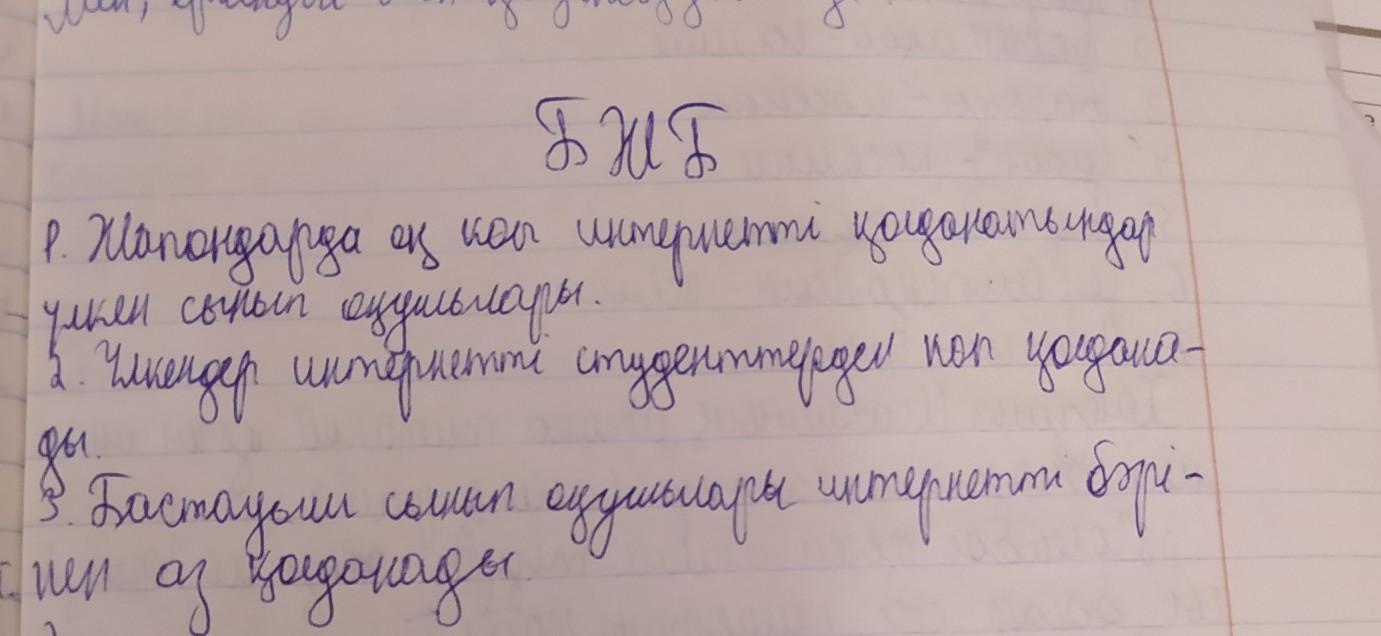 БЖБ
1. Жапондарда ең көп интернетті қолданатындар
үлкен сынып оқушылары.
2. Үлкендер интернетті студенттерден көп қолдана-
ды.
3. Бастауыш сынып оқушылары интернетті бәрі-
нен аз қолданады